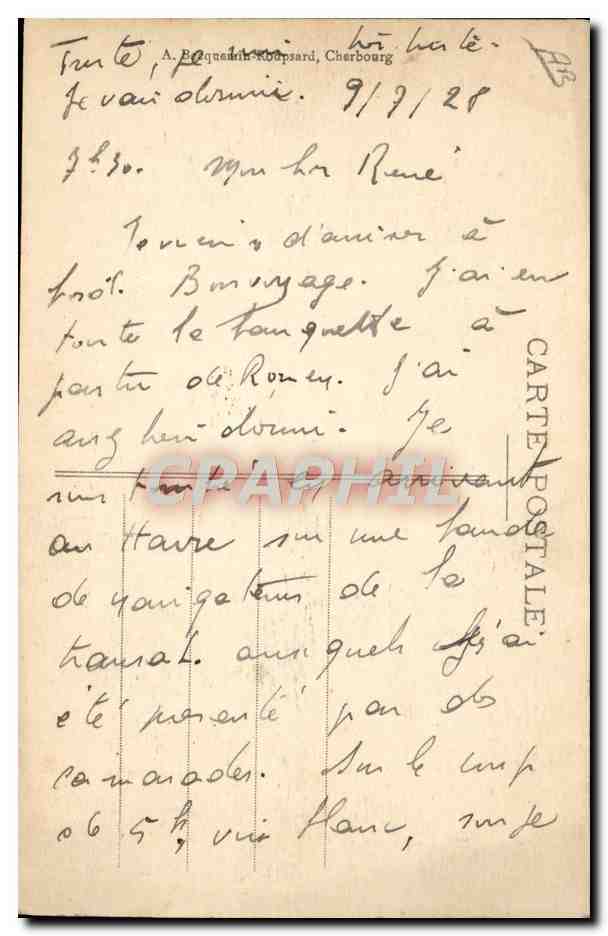 A. Becquemin-Roupsard, Cherbourg
AB
Je vais dormir. 9/7/28
7h30. Mon cher René
Je viens d'arriver à
Bon voyage. J'ai eu
toute la banquette à
partir de Rouen. J'ai
assez bien dormi. Je
CPAPHIL
suis tombé en arrivant
au Havre sur une bande
de navigateurs de la
transat. auxquels j'ai
été présenté par des
camarades. Sur le coup
de 5h, vin blanc,
CARTE POSTALE